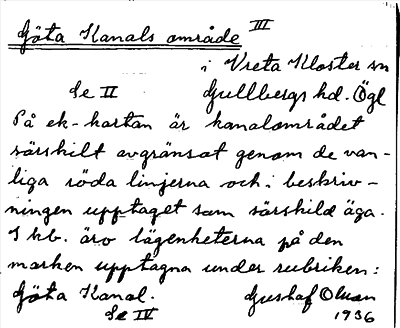 Göta Kanals område III
i Vreta Kloster sn
Se II Gullbergs hd. Ögl
På ek-kartan är kanalområdet
särskilt avgränsat genom de van-
liga röda linjerna och i beskriv-
ningen upptaget som särskild äga.
I kb. äro lägenheterna på den
marken upptagna under rubriken:
Göta Kanal. Gustaf Olman
Se IV 1936